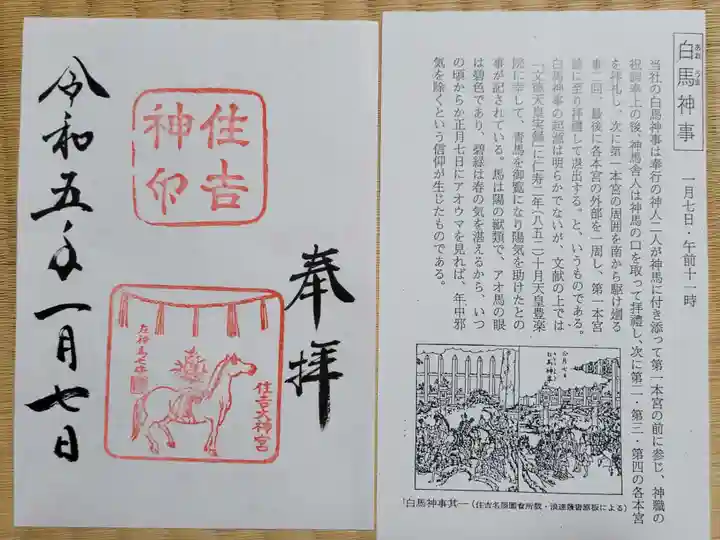 白馬神事
あお うま
一月七日・午前十一時
当社の白馬神事は奉行の神人二人が神馬に付き添って第一本宮の前に参じ、神職の
祝詞奏上の後、神馬舎人は神馬の口を取って拝禮し、次に第二・第三・第四の各本宮
を拝礼し、次に第一本宮の周囲を南から駆け廻る
事二回、最後に各本宮の外部を一周し、第一本宮
前に至り拝禮して退出する。と、いうものである。
白馬神事の起源は明らかでないが、文献の上では
「文徳天皇実録」に仁寿二年(八五二)十月天皇豊楽
院に幸して、青馬を御覧になり陽気を助けたとの
事が記されている。馬は陽の獣類で、アオ馬の眼
は碧色であり、碧緑は春の気を湛えるから、いつ
の頃からか正月七日にアオウマを見れば、年中邪
気を除くという信仰が生じたものである。
白馬神事其一(住吉名勝圖會所載・浪速叢書原板による)
奉拝
住吉
神印
住吉大神宮
令和五年一月七日